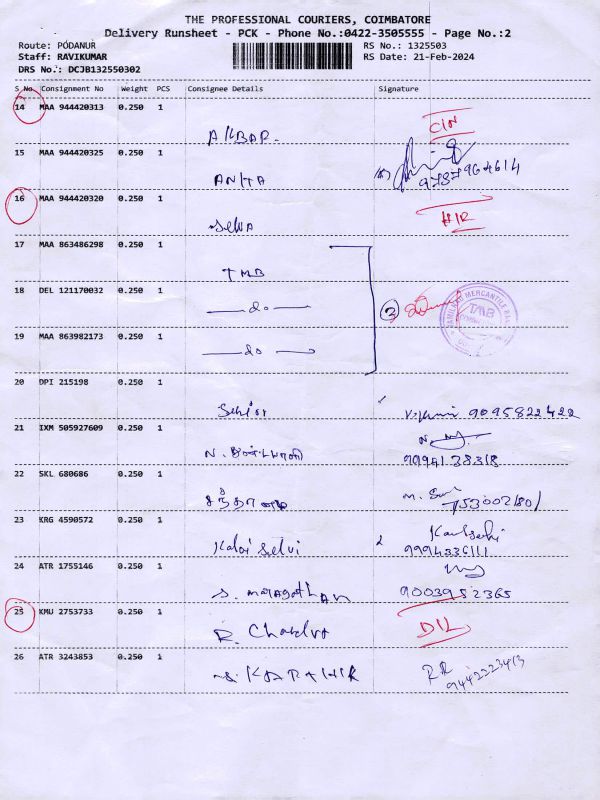 THE PROFESSIONAL COURIERS, COIMBATORE
Delivery Runsheet - PCK - Phone No.:0422-3505555 - Page No.:2
Route: PODANUR
RS No.: 1325503
Staff: RAVIKUMAR
RS Date: 21-Feb-2024
DRS No.: DCJB132550302
S No Consignment No Weight PCS Consignee Details Signature
14 MAA 944420313 0.250 1
AKBAR
15 MAA 944420325 0.250 1
ANITA
16 MAA 944420320 0.250 1
Selva
17 MAA 863486298 0.250 1
TMB
18 DEL 121170032 0.250 1
do
3
19 MAA 863982173 0.250 1
do
20 DPI 215198 0.250 1
9095822422
21 IXM 505927609 0.250 1
9994138318
22 SKL 680686 0.250 1
23 KRG 4590572 0.250 1
Kalai Selvi
9994336111
24 ATR 1755146 0.250 1
9003952365
25 KMU 2753733 0.250 1
R. Chandra
DIL
26 ATR 3243853 0.250 1
RR
9442323413